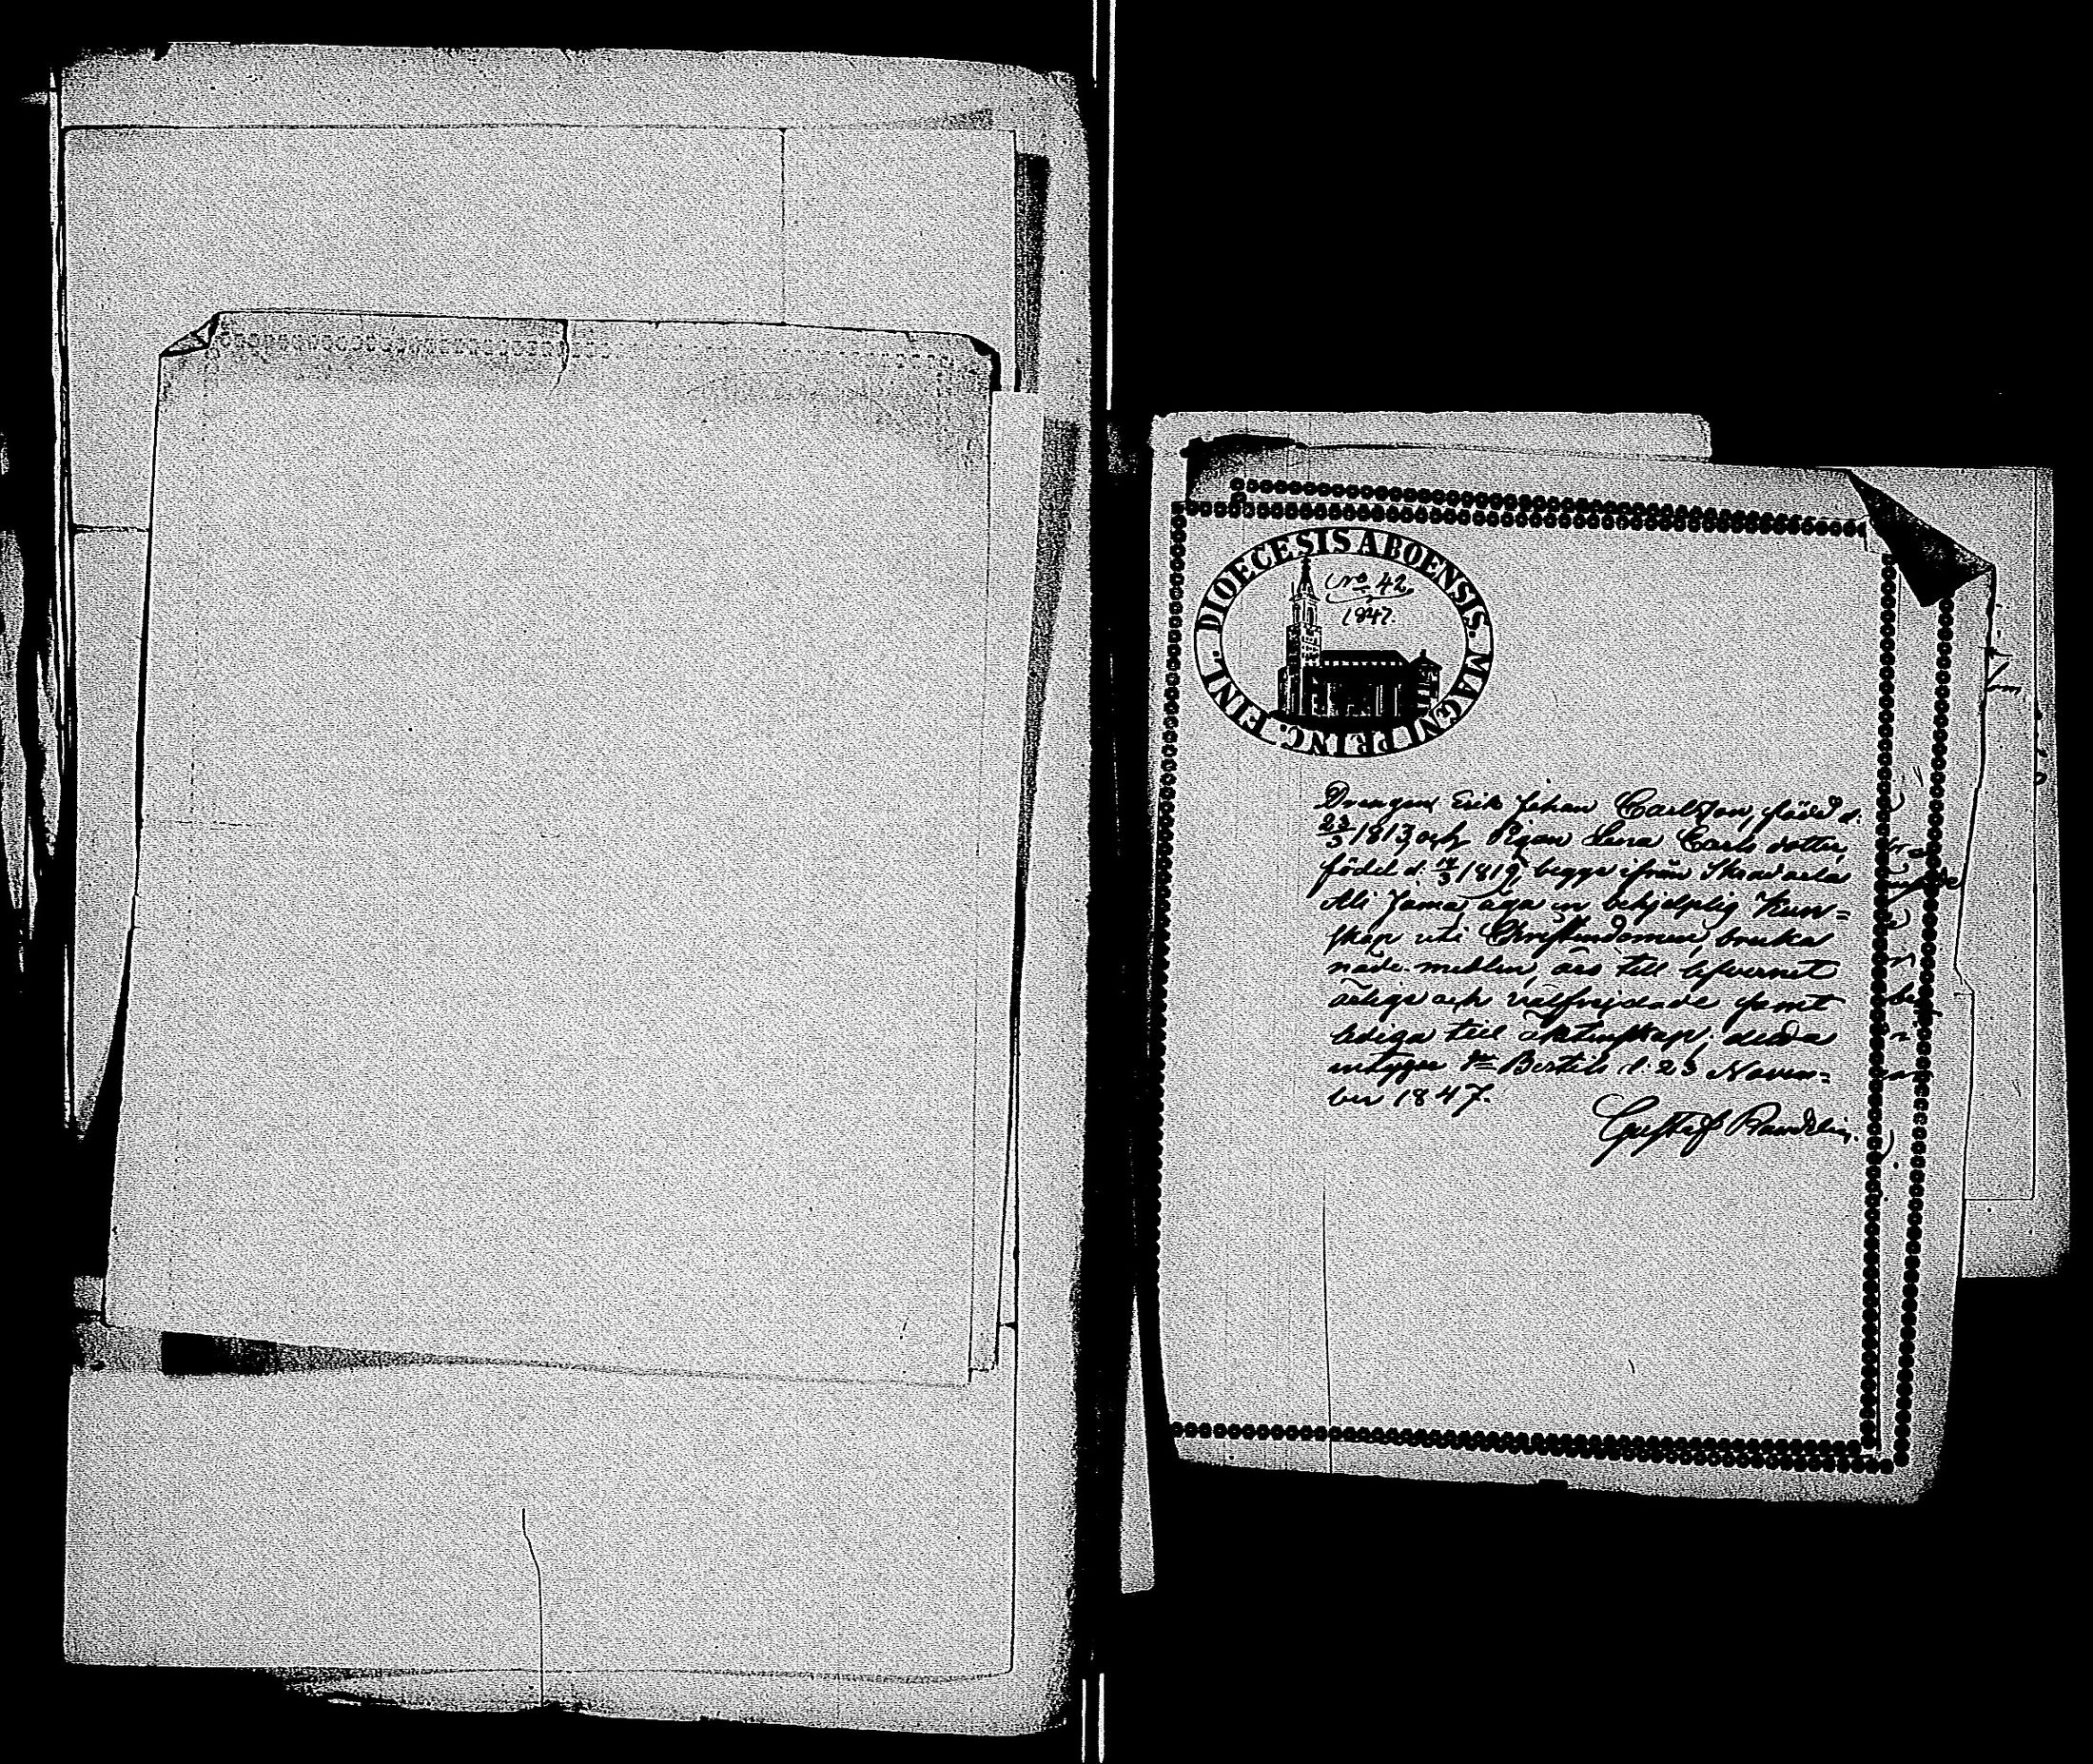 DIOECESIS ABOENSIS. MAGNI PRINC. FINL.
No 42
1847.
Drengen Erik Johan Carlsson, född d.
23/5 1813, och Pigan Lena Carls dotter,
född d. 1/3 1819, begge ifrån
äga en behjelplig Kun=
skap uti Christendomen, bruka
nåde-medlen, äro till lefvernet
ärlige och välfrejdade samt
lediga till äktenskap; detta
intygar St Bertils d. 23 Novem=
ber 1847.
Gustaf